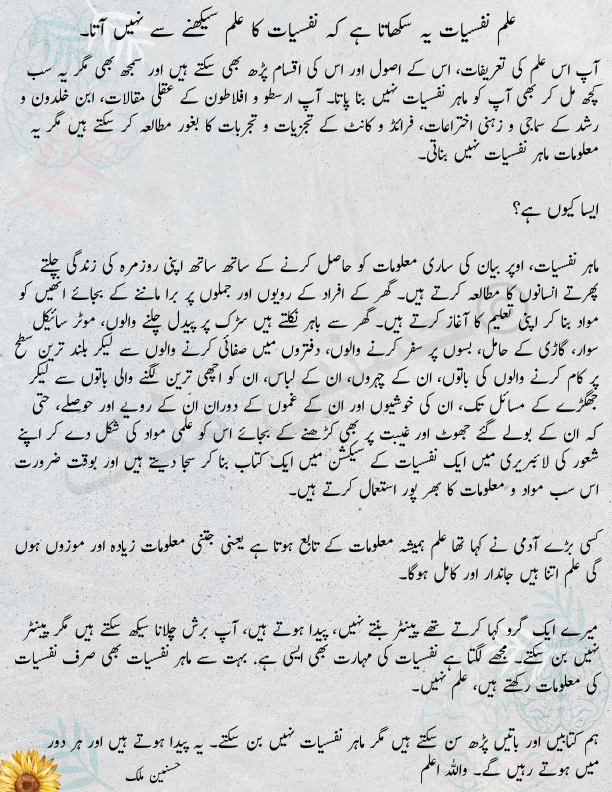 علم نفسیات یہ سکھاتا ہے کہ نفسیات کا علم سیکھنے سے نہیں آتا۔
آپ اس علم کی تعریفات، اس کے اصول اور اس کی اقسام پڑھ بھی سکتے ہیں اور سمجھ بھی مگر یہ سب
کچھ مل کر بھی آپ کو ماہر نفسیات نہیں بنا پاتا۔ آپ ارسطو و افلاطون کے عقلی مقالات، ابن خلدون و
رشد کے سماجی و ذہنی اختراعات، فرائڈ و کانٹ کے تجزیات و تجربات کا بغور مطالعہ کر سکتے ہیں مگر یہ
معلومات ماہر نفسیات نہیں بناتی۔
ایسا کیوں ہے؟
ماہر نفسیات، اوپر بیان کی ساری معلومات کو حاصل کرنے کے ساتھ ساتھ اپنی روزمرہ کی زندگی چلتے
پھرتے انسانوں کا مطالعہ کرتے ہیں۔ گھر کے افراد کے رویوں اور جملوں پر برا ماننے کے بجائے انھیں کو
مواد بنا کر اپنی تعلیم کا آغاز کرتے ہیں۔ گھر سے باہر نکلتے ہیں سڑک پر پیدل چلنے والوں، موٹر سائیکل
سوار، گاڑی کے حامل، بسوں پر سفر کرنے والوں، دفتروں میں صفائی کرنے والوں سے لیکر بلند ترین سطح
پر کام کرنے والوں کی باتوں، ان کے چہروں، ان کے لباس، ان کو اچھی ترین لگنے والی باتوں سے لیکر
جھگڑے کے مسائل تک، ان کی خوشیوں اور ان کے غموں کے دوران ان کے رویے اور حوصلے، حتی
کہ ان کے بولے گئے جھوٹ اور غیبت پر بھی کڑھنے کے بجائے اس کو علمی مواد کی شکل دے کر اپنے
شعور کی لائبریری میں ایک نفسیات کے سیکشن میں ایک کتاب بنا کر سجا دیتے ہیں اور بوقت ضرورت
اس سب مواد و معلومات کا بھر پور استعمال کرتے ہیں۔
کسی بڑے آدمی نے کہا تھا علم ہمیشہ معلومات کے تابع ہوتا ہے یعنی جتنی معلومات زیادہ اور موزوں ہوں
گی علم اتنا ہیں جاندار اور کامل ہوگا۔
میرے ایک گرو کہا کرتے تھے پینٹر بنتے نہیں، پیدا ہوتے ہیں، آپ برش چلانا سیکھ سکتے ہیں مگر پینٹر
نہیں بن سکتے۔ مجھے لگتا ہے نفسیات کی مہارت بھی ایسی ہے۔ بہت سے ماہر نفسیات بھی صرف نفسیات
کی معلومات رکھتے ہیں، علم نہیں۔
ہم کتابیں اور باتیں پڑھ سن سکتے ہیں مگر ماہر نفسیات نہیں بن سکتے۔ یہ پیدا ہوتے ہیں اور ہر دور
میں ہوتے رہیں گے۔ واللہ اعلم
حسنین ملک